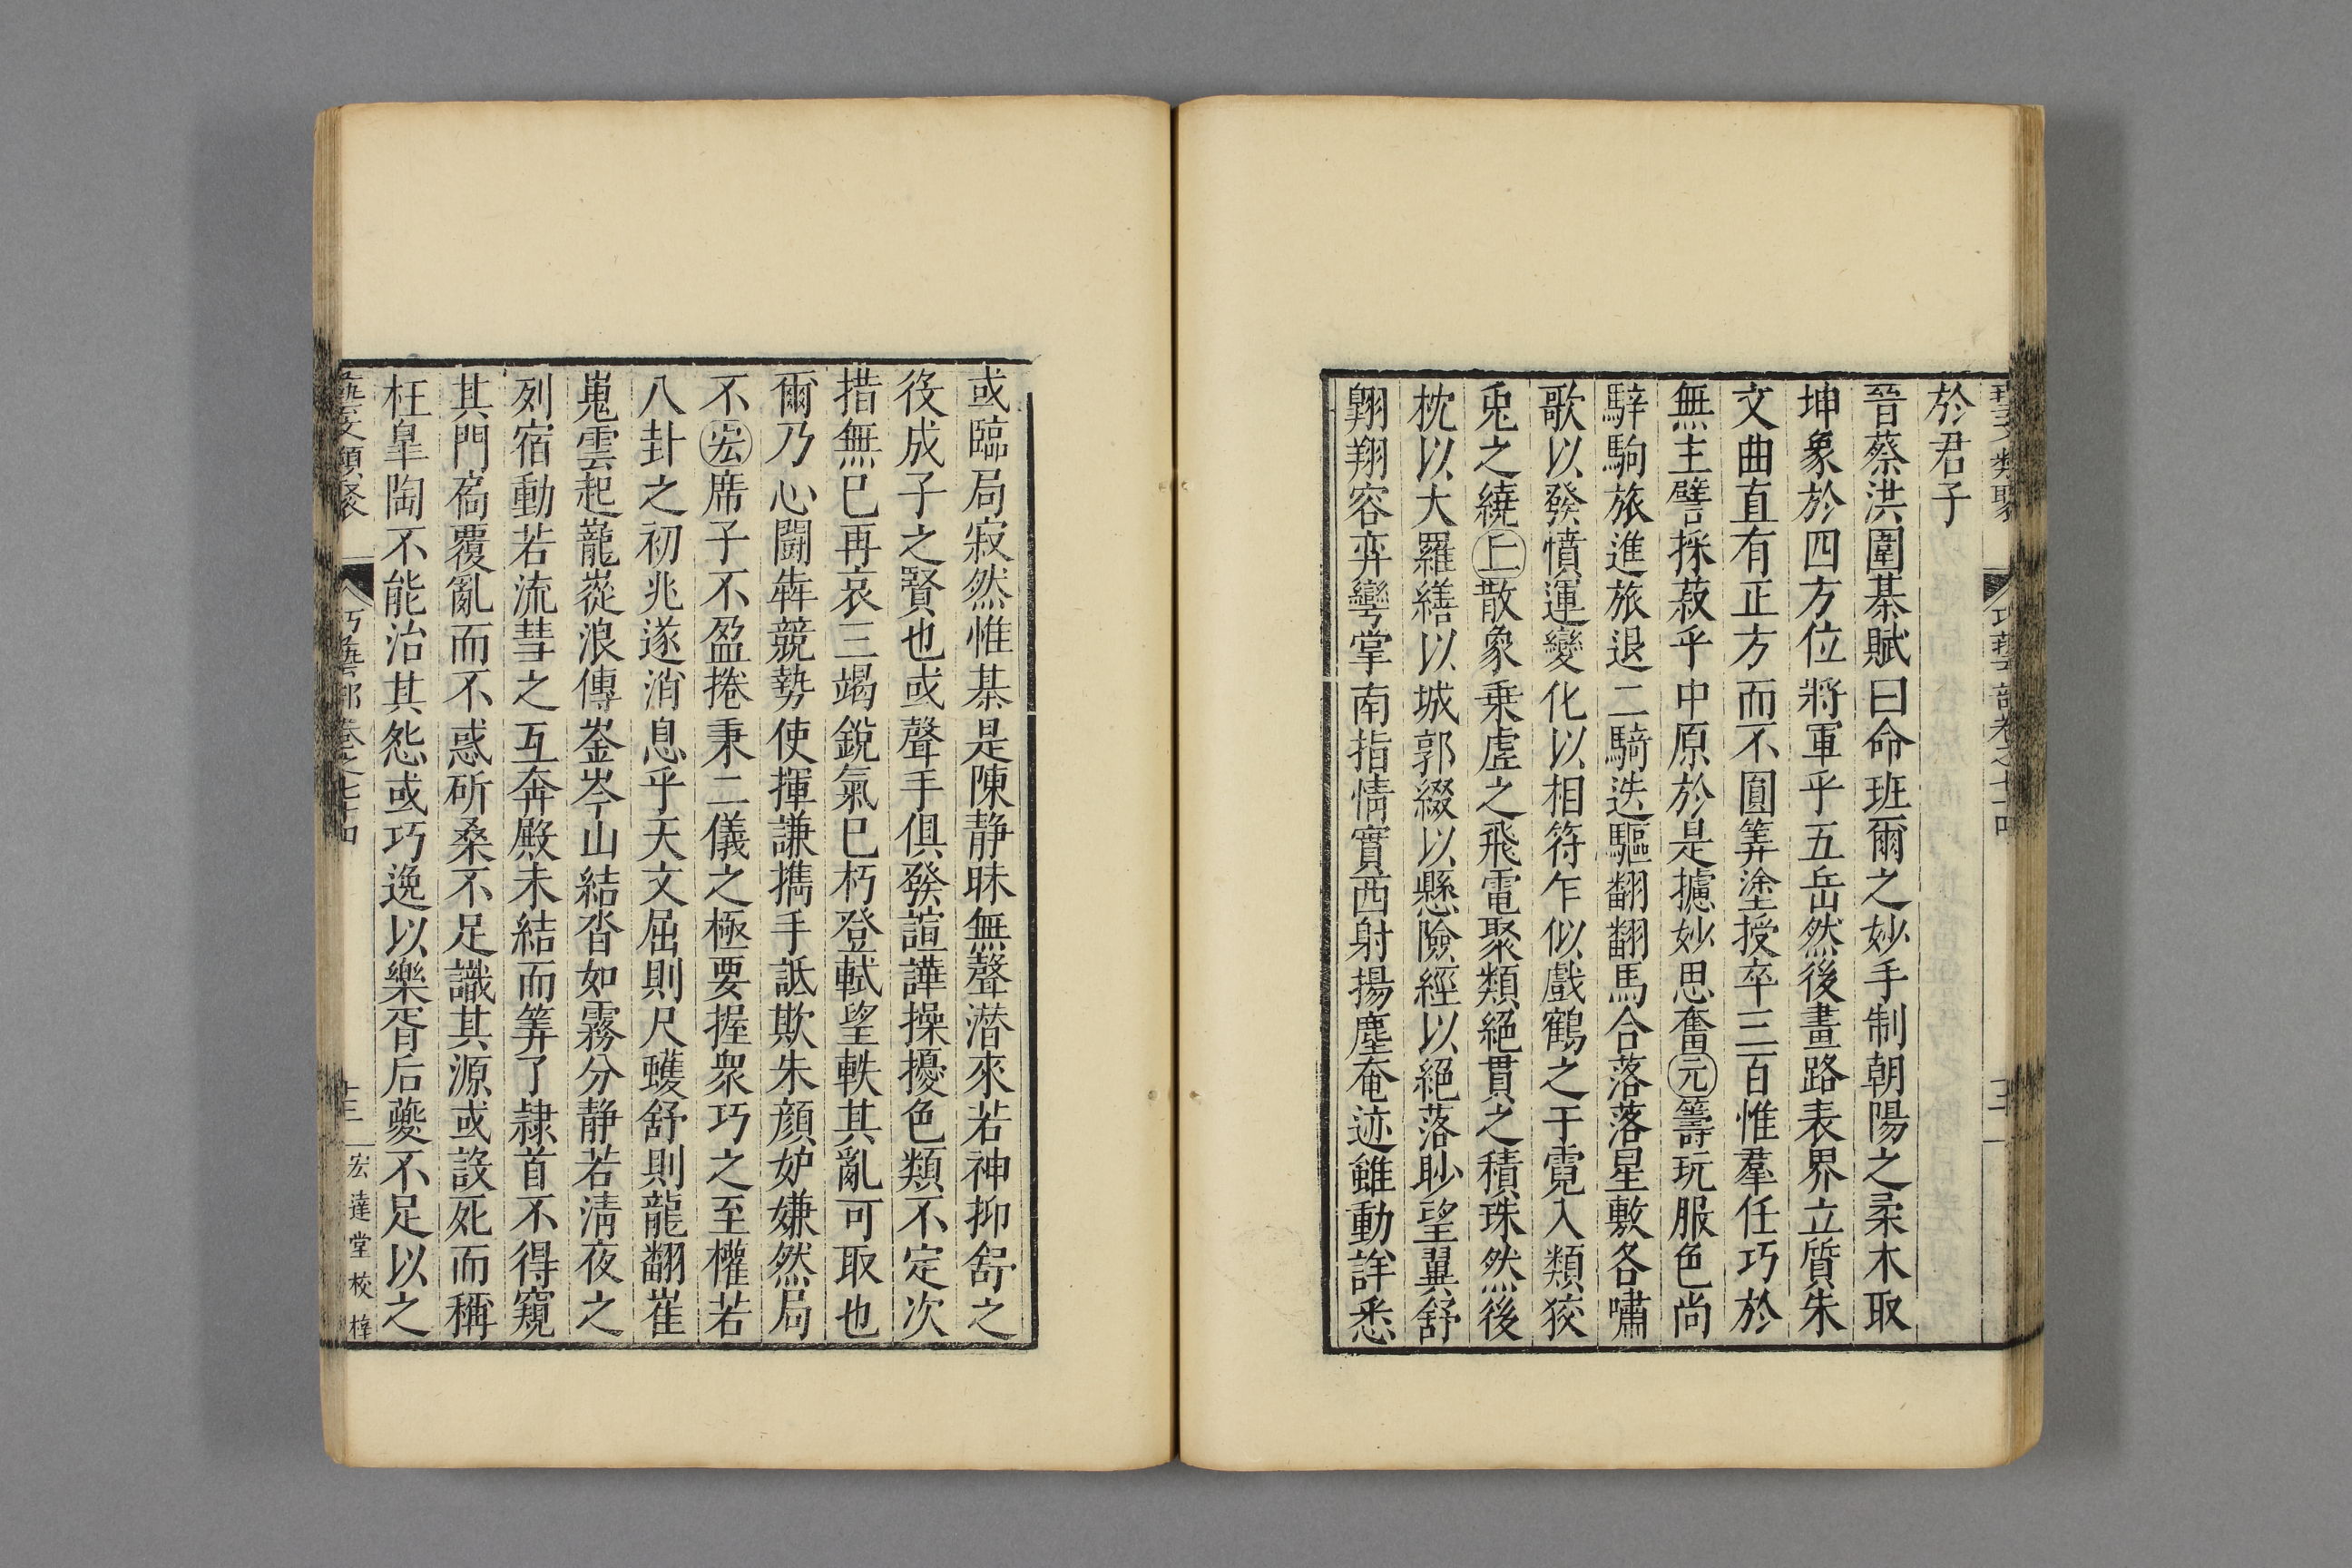 於君子
晉蔡洪圍棊賦曰命班爾之妙手制朝陽之柔木取
坤象於四方位將軍乎五岳然後畫路表界立質朱
文曲直有正方而不圓筭塗授卒三百惟羣任巧於
無主譬採菽乎中原於是攄妙思奮元籌玩服色尚
騂駒旅進旅退二騎迭驅翻翻馬合落落星敷各嘯
歌以發憤運變化以相符乍似戲鶴之干霓入類狡
兎之繞丘散象乗虗之飛電聚類絕貫之積珠然後
枕以大羅繕以城郭綴以懸險經以絕落眇望翼舒
翺翔容弈彎掌南指情實西射揚塵奄迹雖動詳悉
或臨局寂然惟棊是陳静昧無聲潜來若神抑舒之
役成子之賢也或聲手俱發諠譁操擾色類不定次
措無已再哀三竭銳氣已朽登軾望軼其亂可取也
爾乃心鬭犇競勢使揮謙擕手詆欺朱顏妒嫌然局
不宏席子不盈捲秉二儀之極要握衆巧之至權若
八卦之初兆遂消息乎天文屈則尺蠖舒則龍翻崔
嵬雲起巃嵸浪傳崟岑山結沓如霧分静若淸夜之
列宿動若流彗之互奔殿未結而筭了隷首不得窺
其門矞覆亂而不惑硏桑不足識其源或設死而稱
枉皐陶不能治其怨或巧逸以樂胥后夔不足以之
藝文類聚
巧藝部卷之七十四
十三
宏達堂校梓